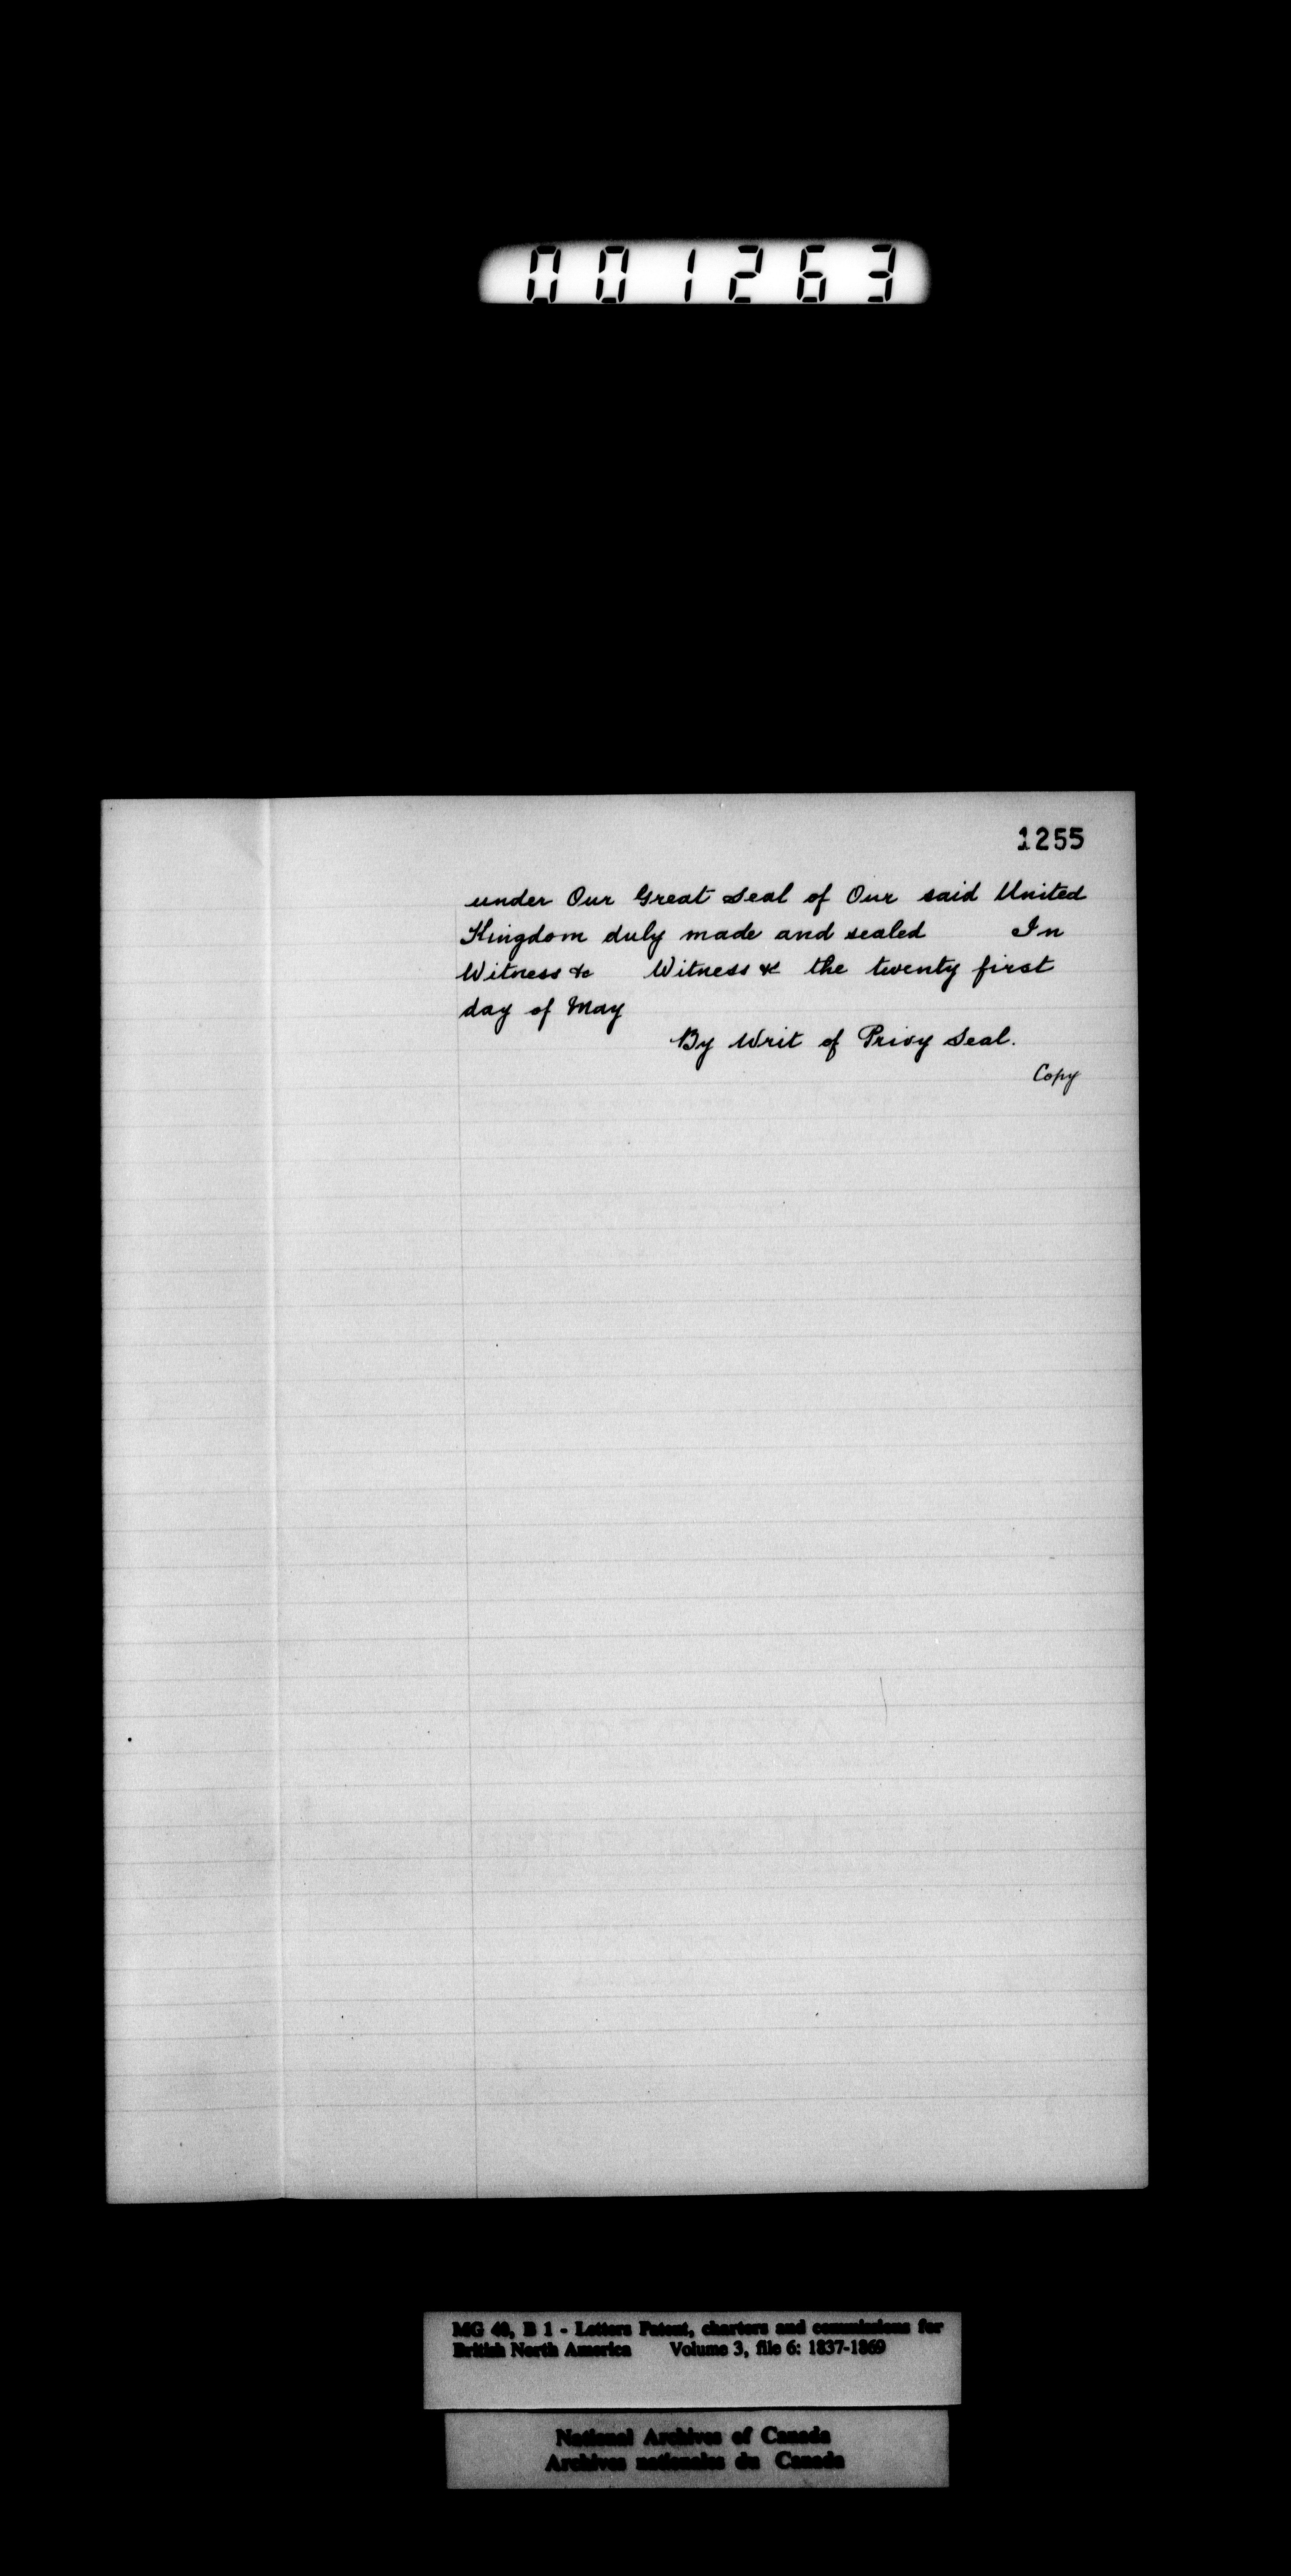 001263
1255
under Our Great Seal of Our said United
Kingdom duly made and sealed In
Witness &c Witness &c the twenty first
day of May
By Writ of Privy Seal.
Copy
MG 40, B 1 - Letters Patent, charters and commissions for
British North America Volume 3, file 6: 1837-1869
National Archives of Canada
Archives nationales du Canada